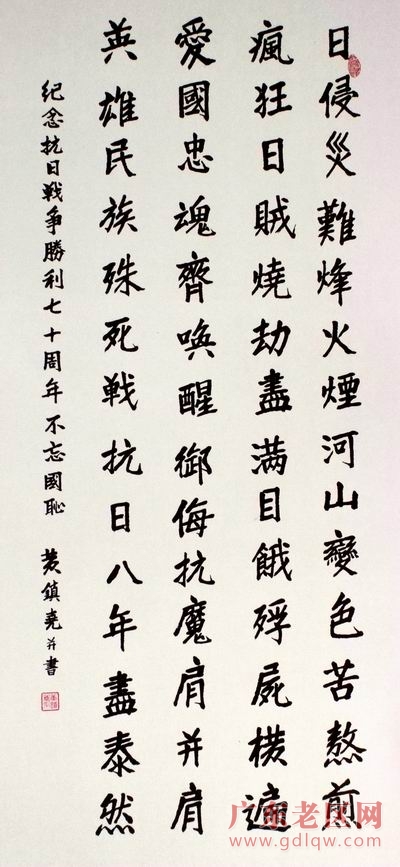 日侵災難烽火煙河山變色苦熬煎
瘋狂日賊燒劫盡满目餓殍屍横遍
愛國忠魂齊唤醒御侮抗魔肩并肩
英雄民族殊死戦抗日八年盡泰然
纪念抗日戦争勝利七十周年不忘國恥 黄鎮尭并書
广东老区网
www.gdlqw.com